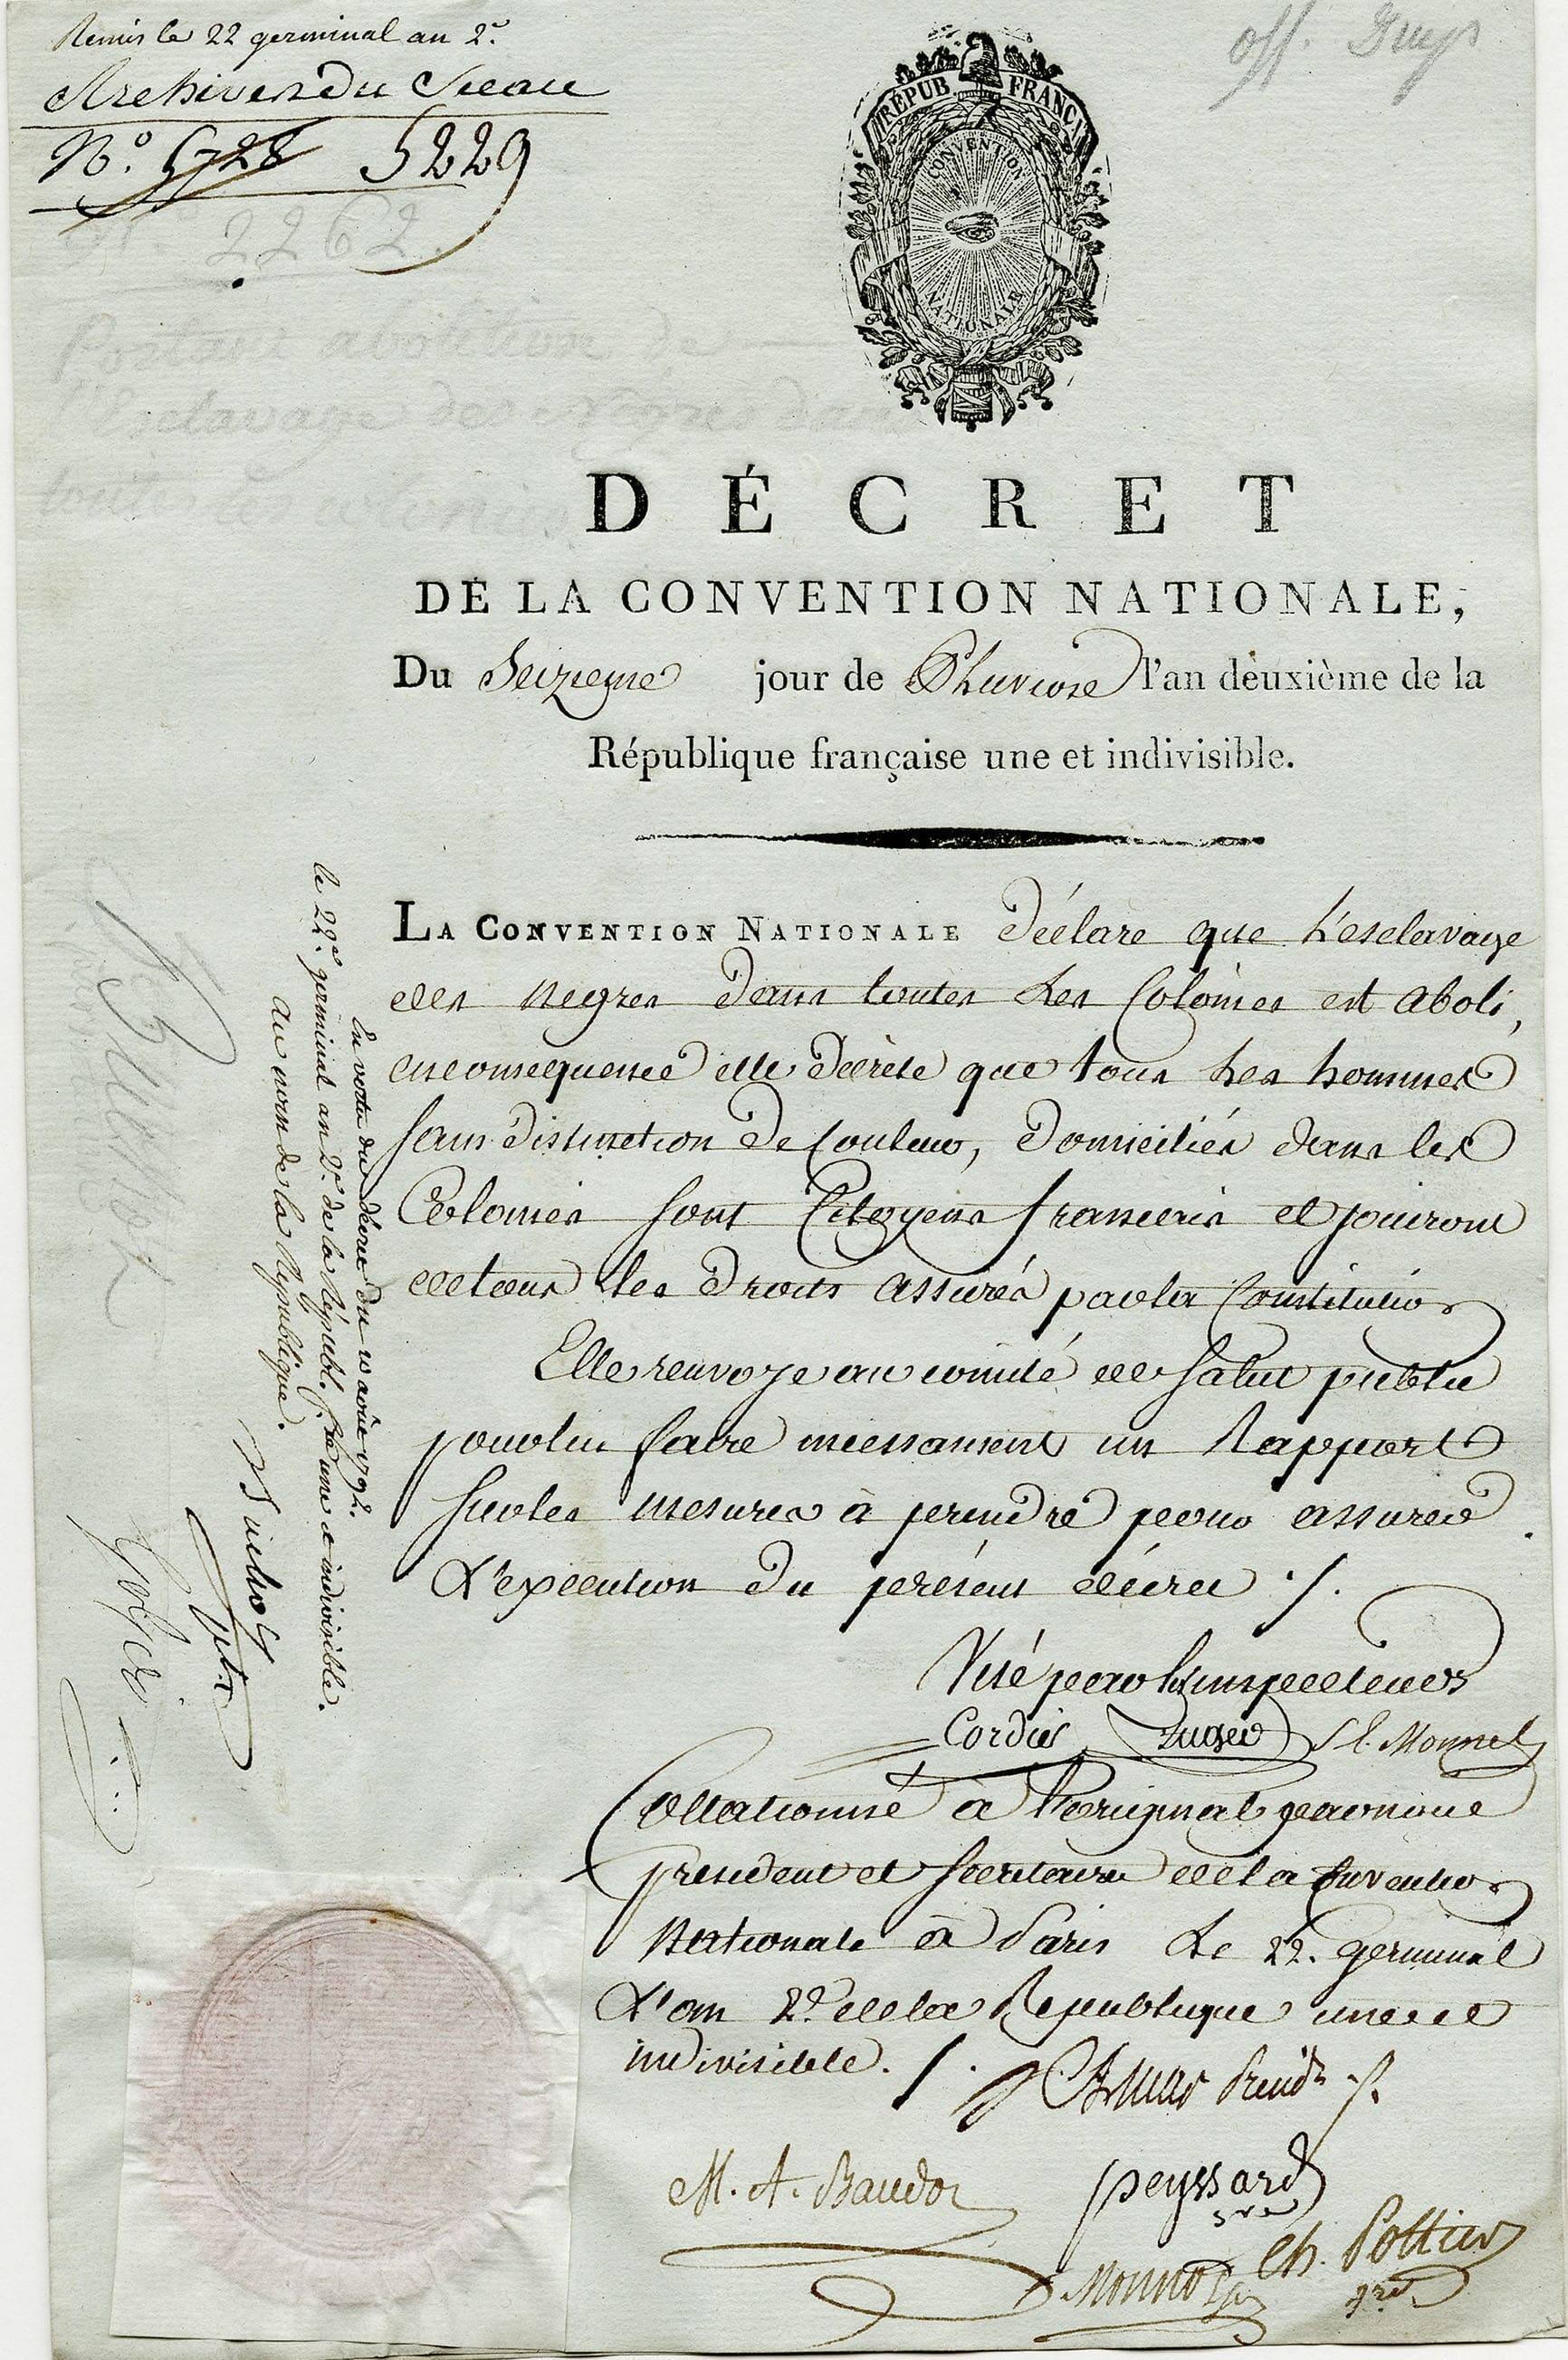 Remis le 22 germinal an 2e.
Archives du Sceau
N.° 5728 5229
2262.
off. Guys
RÉPUB. FRANC.
CONVENTION
NATIONALE
DÉCRET
DE LA CONVENTION NATIONALE,
Du Seizieme jour de Pluviose l'an deuxième de la
République française une et indivisible.
LA CONVENTION NATIONALE Déclare que L'esclavage
des Negres dans toutes Les Colonies est aboli,
en consequence elle Décrète que tous Les hommes
sans distinction De Couleur, Domiciliés dans les
Colonies sont Citoyens francais et jouiront
de tous les Droits assurés par la Constitution
Elle renvoye au comité de Salut public
pour lui faire incessament un Rapport
sur les mesures à prendre pour assurer
L'execution du présent décret ./.
Visé par les inspecteurs
Cordier Auger S. E. Monnel
Collationné à l'original par nous
president et Secretaires de la Convention
Nationale à Paris Le 22. Germinal
L'an 2e. de la Republique une et
indivisible. /.
Amar Presidt.
M. A. Baudot
peyssard
sre
Monnot
Ch. Pottier
sre
En vertu du décret du 10 août 1792.
le 22e. germinal an 2e. de la Républ. fse une et indivisible.
Au nom de la République.